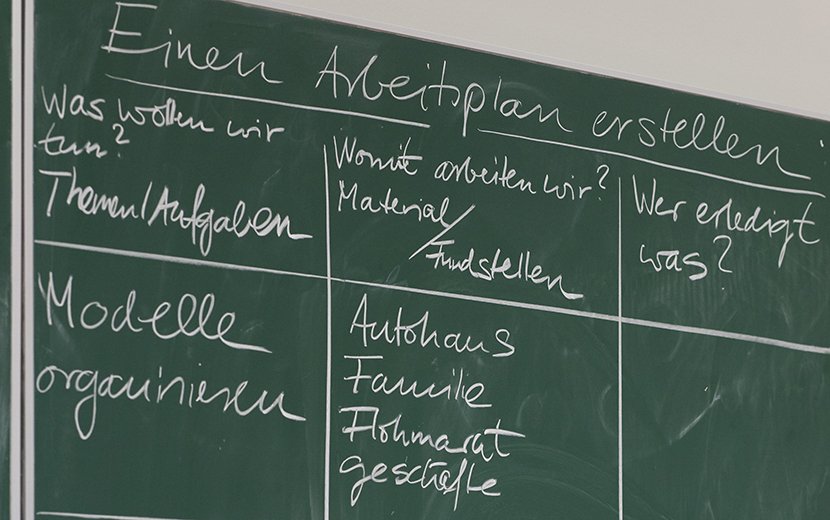 Einen Arbeitsplan erstellen
Was wollen wir
tun?
Themen/Aufgaben
Womit arbeiten wir?
Material/
Fundstellen
Wer erledigt
was?
Modelle
organisieren
Autohaus
Familie
Flohmarkt
geschäfte